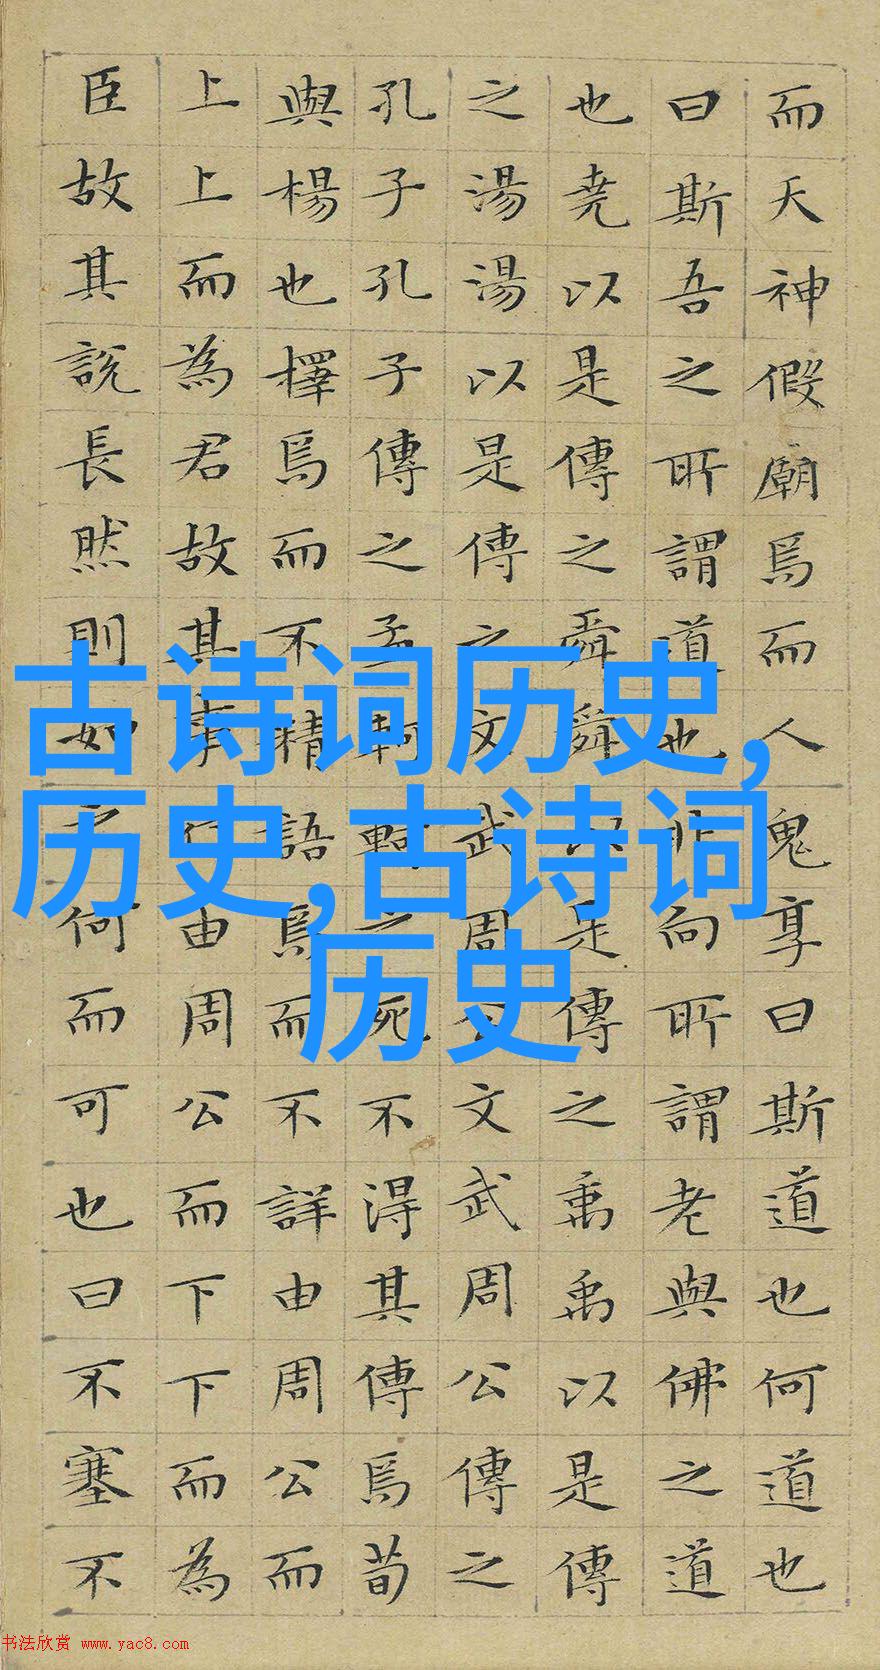 而天神假廟焉而人鬼享曰斯道也何道也
曰斯吾之所謂道也非向所謂老與佛之道
也堯以是傳之舜舜以是傳之禹禹以是傳
之湯湯以是傳之文武周公文武周公傳之
孔子孔子傳之孟軻軻之死不得其傳焉荀
與楊也擇焉而不精語焉而不詳由周公而
上上而為君故其事行由周公而下下而為
臣故其說長然則如之何而可也曰不塞不
古诗词历史,
历史,古诗词
历史
书法欣赏 www.yac8.com